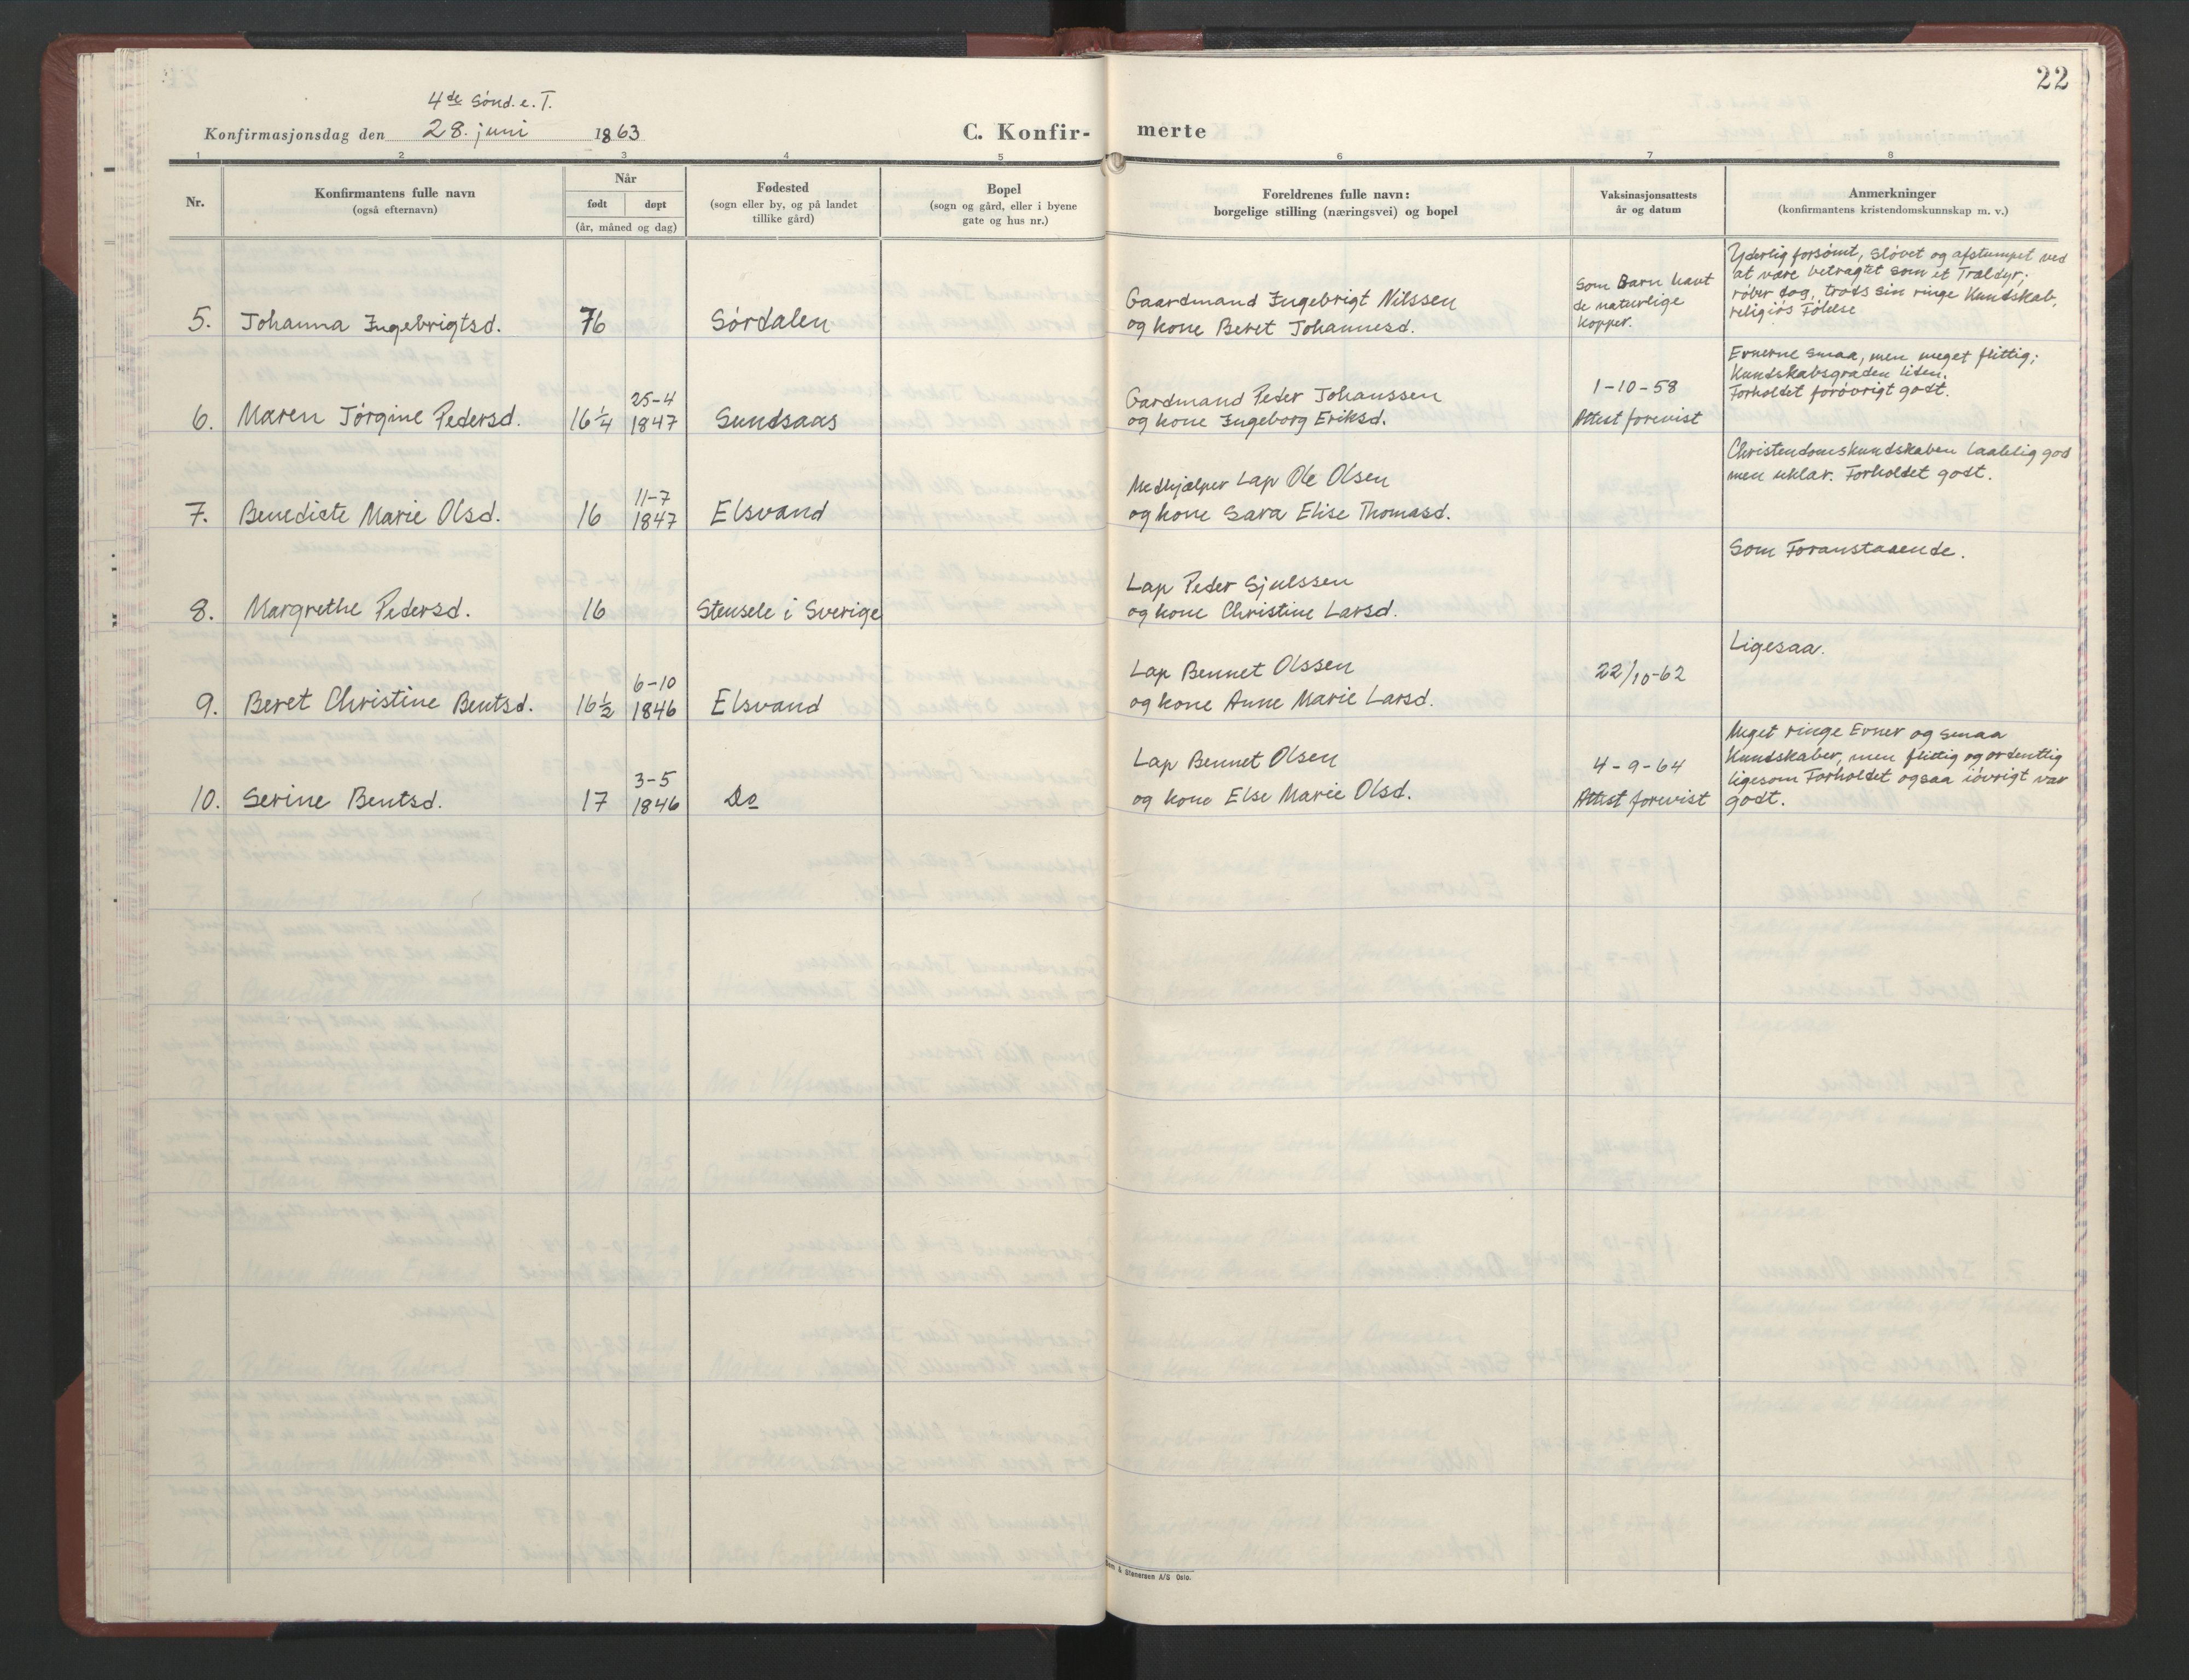 22
4de Sönd. e. T.
Konfirmasjonsdag den 28. juni 1863
C. Konfir- merte
1 2 3 4 5 6 7 8
Nr.
Konfirmantens fulle navn
(også efternavn)
Når
født døpt
(år, måned og dag)
Fødested
(sogn eller by, og på landet
tillike gård)
Bopel
(sogn og gård, eller i byene
gate og hus nr.)
Foreldrenes fulle navn:
borgelige stilling (næringsvei) og bopel
Vaksinasjonsattests
år og datum
Anmerkninger
(konfirmantens kristendomskunnskap m. v.)
5. Johanna Ingebrigtsd. 76 Sördalen
Gaardmand Ingebrigt Nilssen
og kone Beret Johannesd.
Som Barn havt
de naturlige
kopper.
Yderlig forsömt, slövet og afstumpet ved
at være betragtet som et Trældyr;
röber dog, trods sin ringe Kundskab,
religiös Fölelse
6. Maren Jörgine Pedersd. 16 1/4
25-4
1847
Sundsaas
Gardmand Peder Johanssen
og kone Ingeborg Eriksd.
1-10-58
Attest forevist
Evnerne smaa, men meget flittig;
Kundskabsgraden liden.
Forholdet forövrigt godt.
7. Benedicte Marie Olsd. 16
11-7
1847
Elsvand
Medhjælper Lap Ole Olsen
og kone Sara Elise Thomasd.
Christendomskundskaben taalelig god
men uklar. Forholdet godt.
8. Margrethe Pedersd. 16 Stensele i Sverige
Lap Peder Sjulssen
og kone Christine Larsd.
Som Foranstaaende.
9. Beret Christine Bentsd. 16 1/2
6-10
1846
Elsvand
Lap Bennet Olssen
og kone Anne Marie Larsd.
22/10-62
Ligesaa.
10. Serine Bentsd. 17
3-5
1846
Do
Lap Bennet Olsen
og kone Else Marie Olsd.
4-9-64
Attest forevist
Meget ringe Evner og smaa
Kundskaber, men flittig og ordentlig
ligesom Forholdet ogsaa iövrigt var
godt.
& Stenersen A/S Oslo.